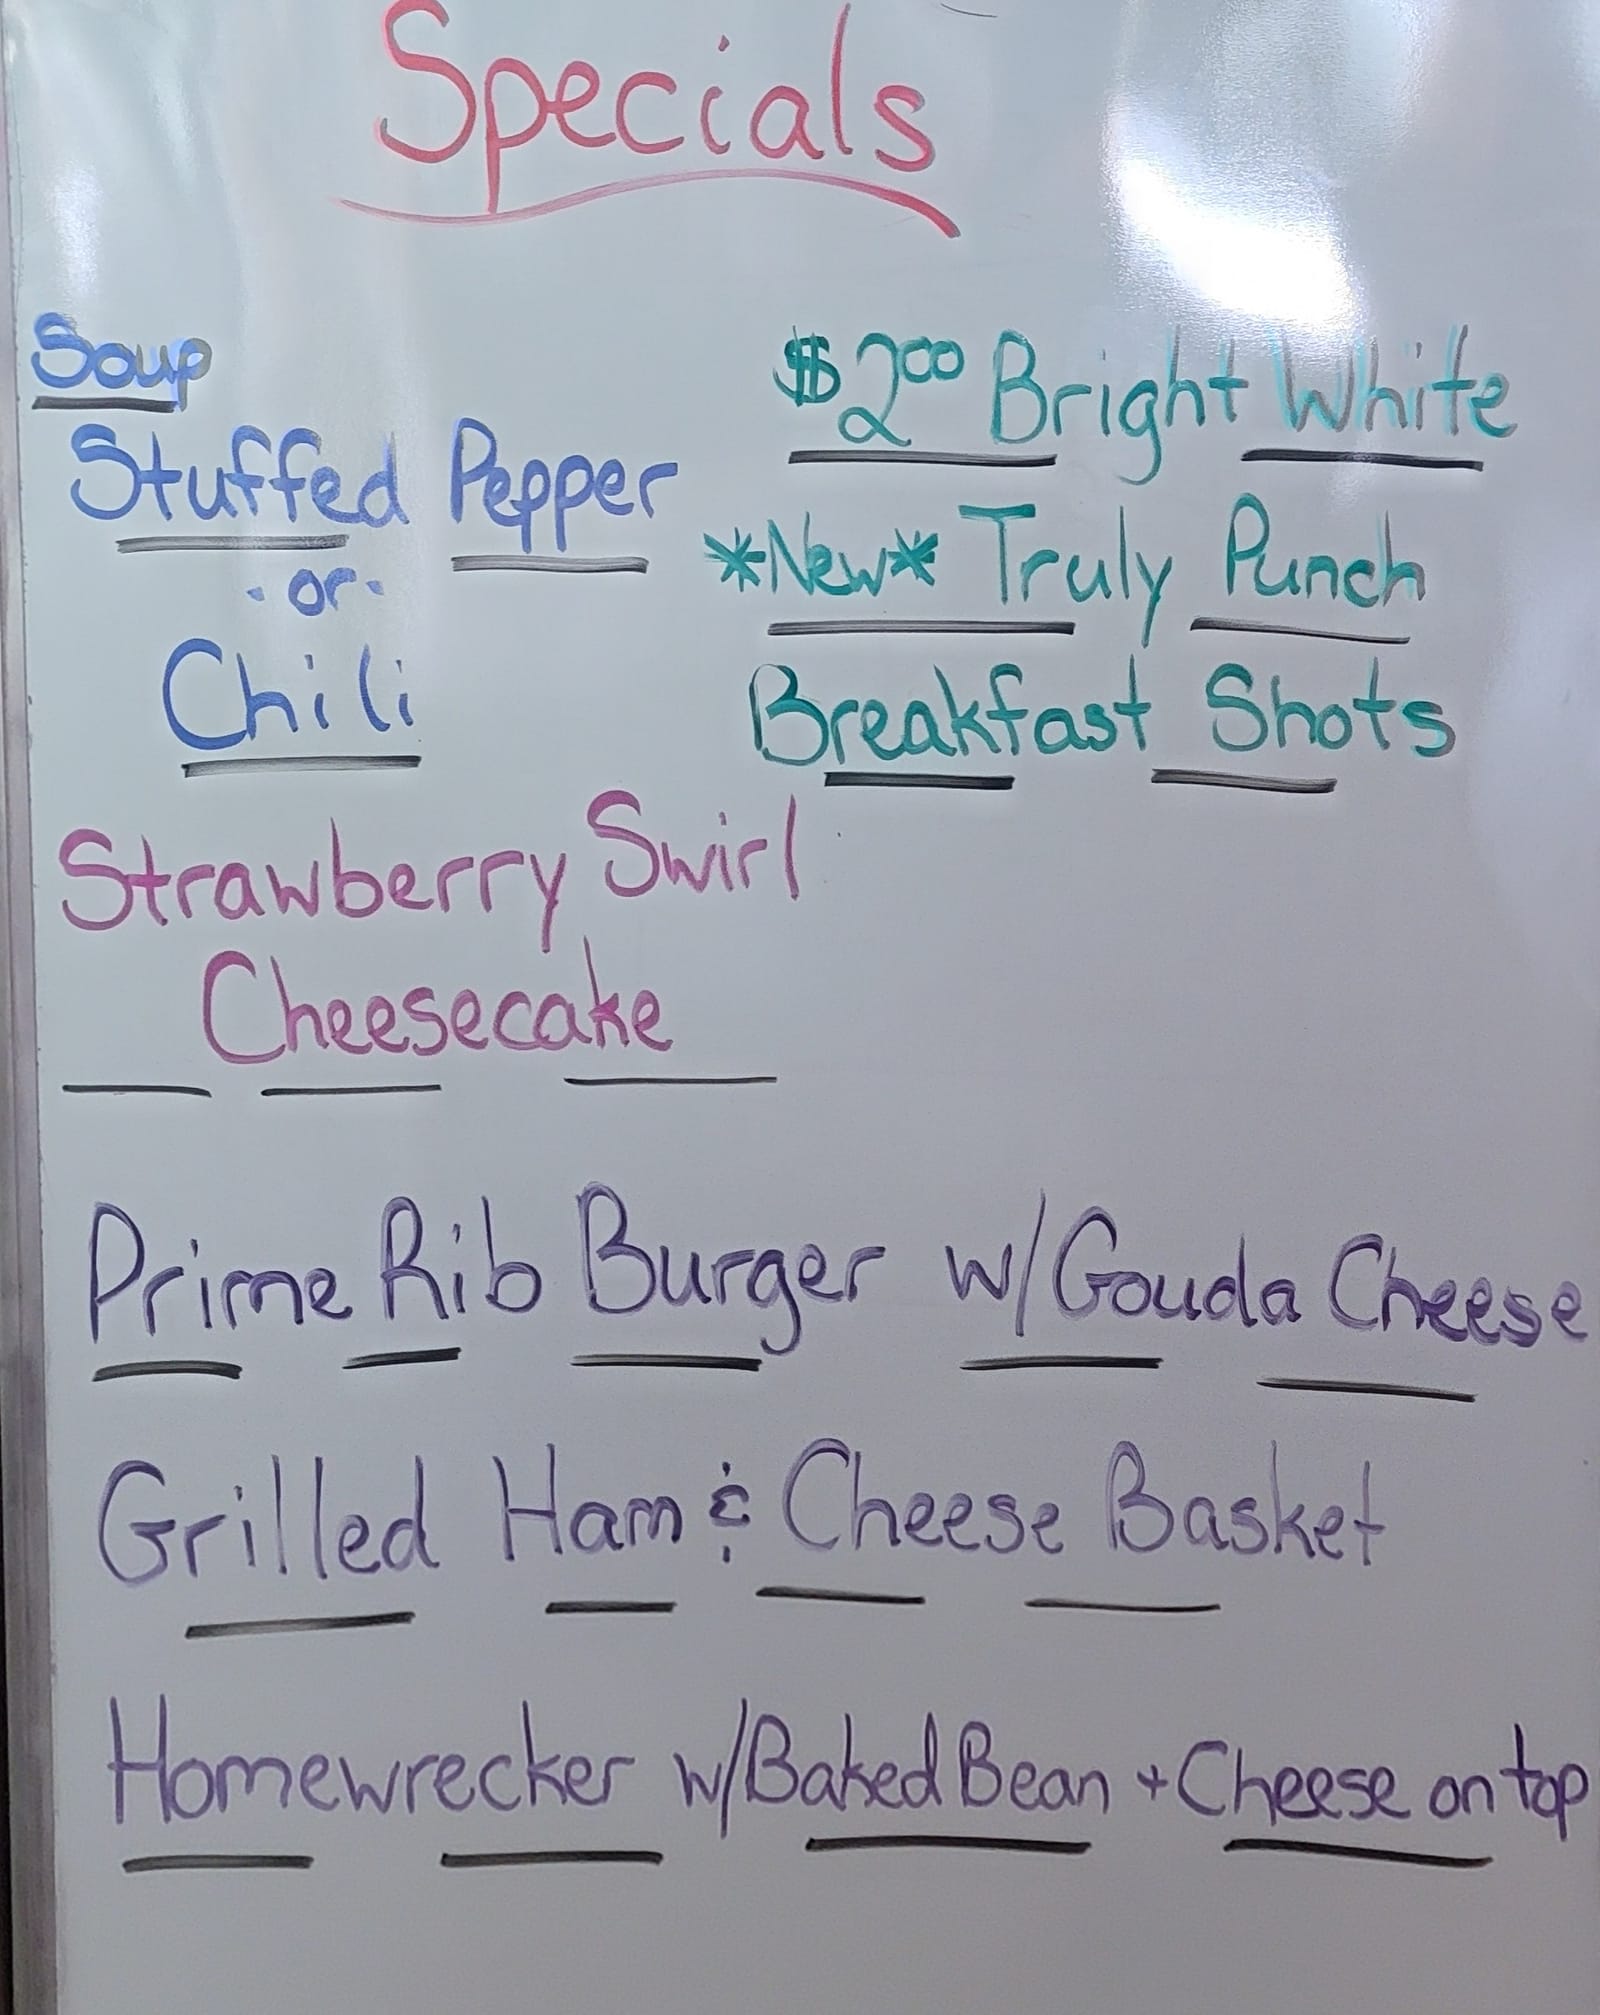 Specials
Soup
Stuffed Pepper
-or-
Chili
$2.00 Bright White
*New* Truly Punch
Breakfast Shots
Strawberry Swirl
Cheesecake
Prime Rib Burger w/Gouda Cheese
Grilled Ham & Cheese Basket
Homewrecker w/Baked Bean + Cheese on top